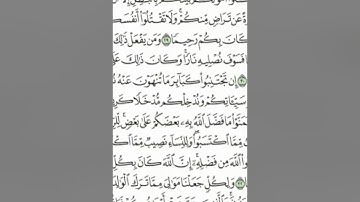 عَن تَرَاضٍ مِّنكُمْ ۚ وَلَا تَقْتُلُوٓا۟ أَنفُسَكُ
كَانَ بِكُمْ رَحِيمًا ٢٩ وَمَن يَفْعَلْ ذَٰلِكَ
فَسَوْفَ نُصْلِيهِ نَارًا ۚ وَكَانَ ذَٰلِكَ عَلَى
٣٠ إِن تَجْتَنِبُوا۟ كَبَآئِرَ مَا تُنْهَوْنَ عَنْهُ نُ
سَيِّـَٔاتِكُمْ وَنُدْخِلْكُم مُّدْخَلًا كَرِي
مَنَّوْا۟ مَا فَضَّلَ ٱللَّهُ بِهِۦ بَعْضَكُمْ عَلَىٰ بَعْضٍ ۚ لِّل
مِّمَّا ٱكْتَسَبُوا۟ ۖ وَلِلنِّسَآءِ نَصِيبٌ مِّمَّا ٱك
وا۟ ٱللَّهَ مِن فَضْلِهِۦٓ ۗ إِنَّ ٱللَّهَ كَانَ بِكُلِّ
٣٢ وَلِكُلٍّ جَعَلْنَا مَوَٰلِيَ مِمَّا تَرَكَ ٱلْوَٰلِدَ